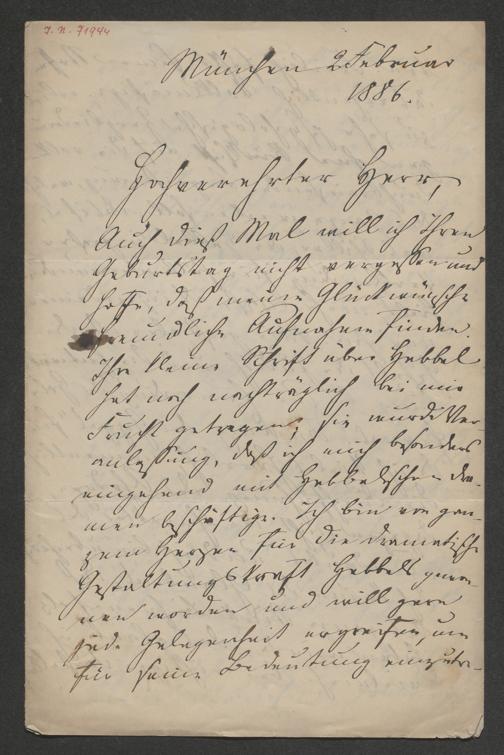 J. N. 71944
München 2 Februar
1886.
Hochverehrter Herr,
Auch dieß Mal will ich Ihren
Geburtstag nicht vergessen und
hoffe, daß meine Glückwünsche
freundliche Aufnahme finden.
Ihre kleine Schrift über Hebbel
hat noch nachträglich bei mir
Frucht getragen; sie wurde Ver-
anlassung, daß ich mich besonders
eingehend mit Hebbelschen Dra-
men beschäftige. Ich bin von gan-
zem Herzen für die dramatische
Gestaltungskraft Hebbels gewon-
nen worden und will gern
jede Gelegenheit ergreifen, um
für seine Bedeutung einzutre-